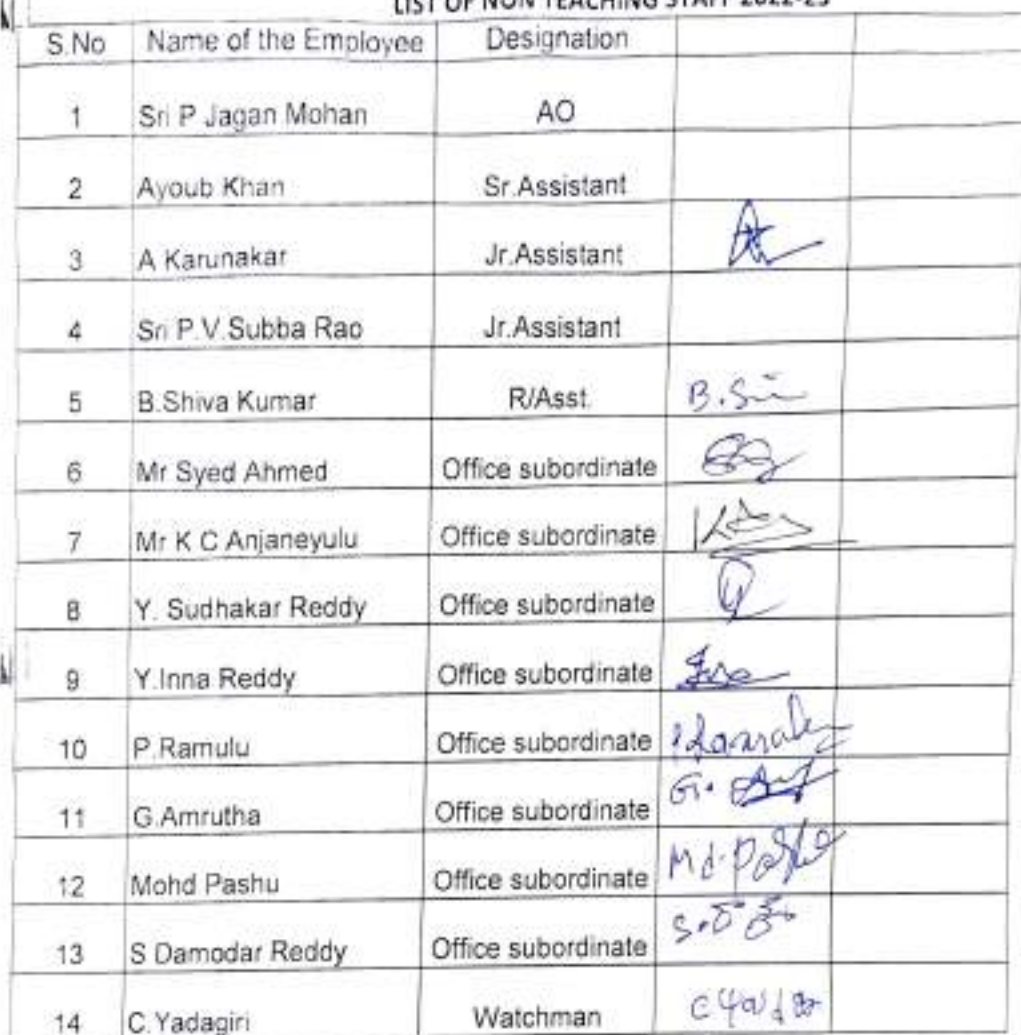 LIST OF NON TEACHING STAFF 2022-23
S.No Name of the Employee Designation
1 Sri P Jagan Mohan AO
2 Ayoub Khan Sr.Assistant
3 A Karunakar Jr.Assistant
4 Sri P.V.Subba Rao Jr.Assistant
5 B.Shiva Kumar R/Asst.
6 Mr Syed Ahmed Office subordinate
7 Mr K C Anjaneyulu Office subordinate
8 Y. Sudhakar Reddy Office subordinate
9 Y.Inna Reddy Office subordinate
10 P.Ramulu Office subordinate
11 G.Amrutha Office subordinate
12 Mohd Pashu Office subordinate
13 S Damodar Reddy Office subordinate
14 C.Yadagiri Watchman